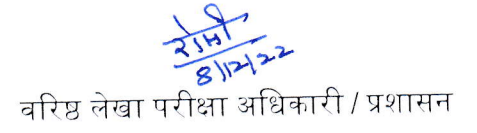 8/12/22
वरिष्ठ लेखा परीक्षा अधिकारी / प्रशासन